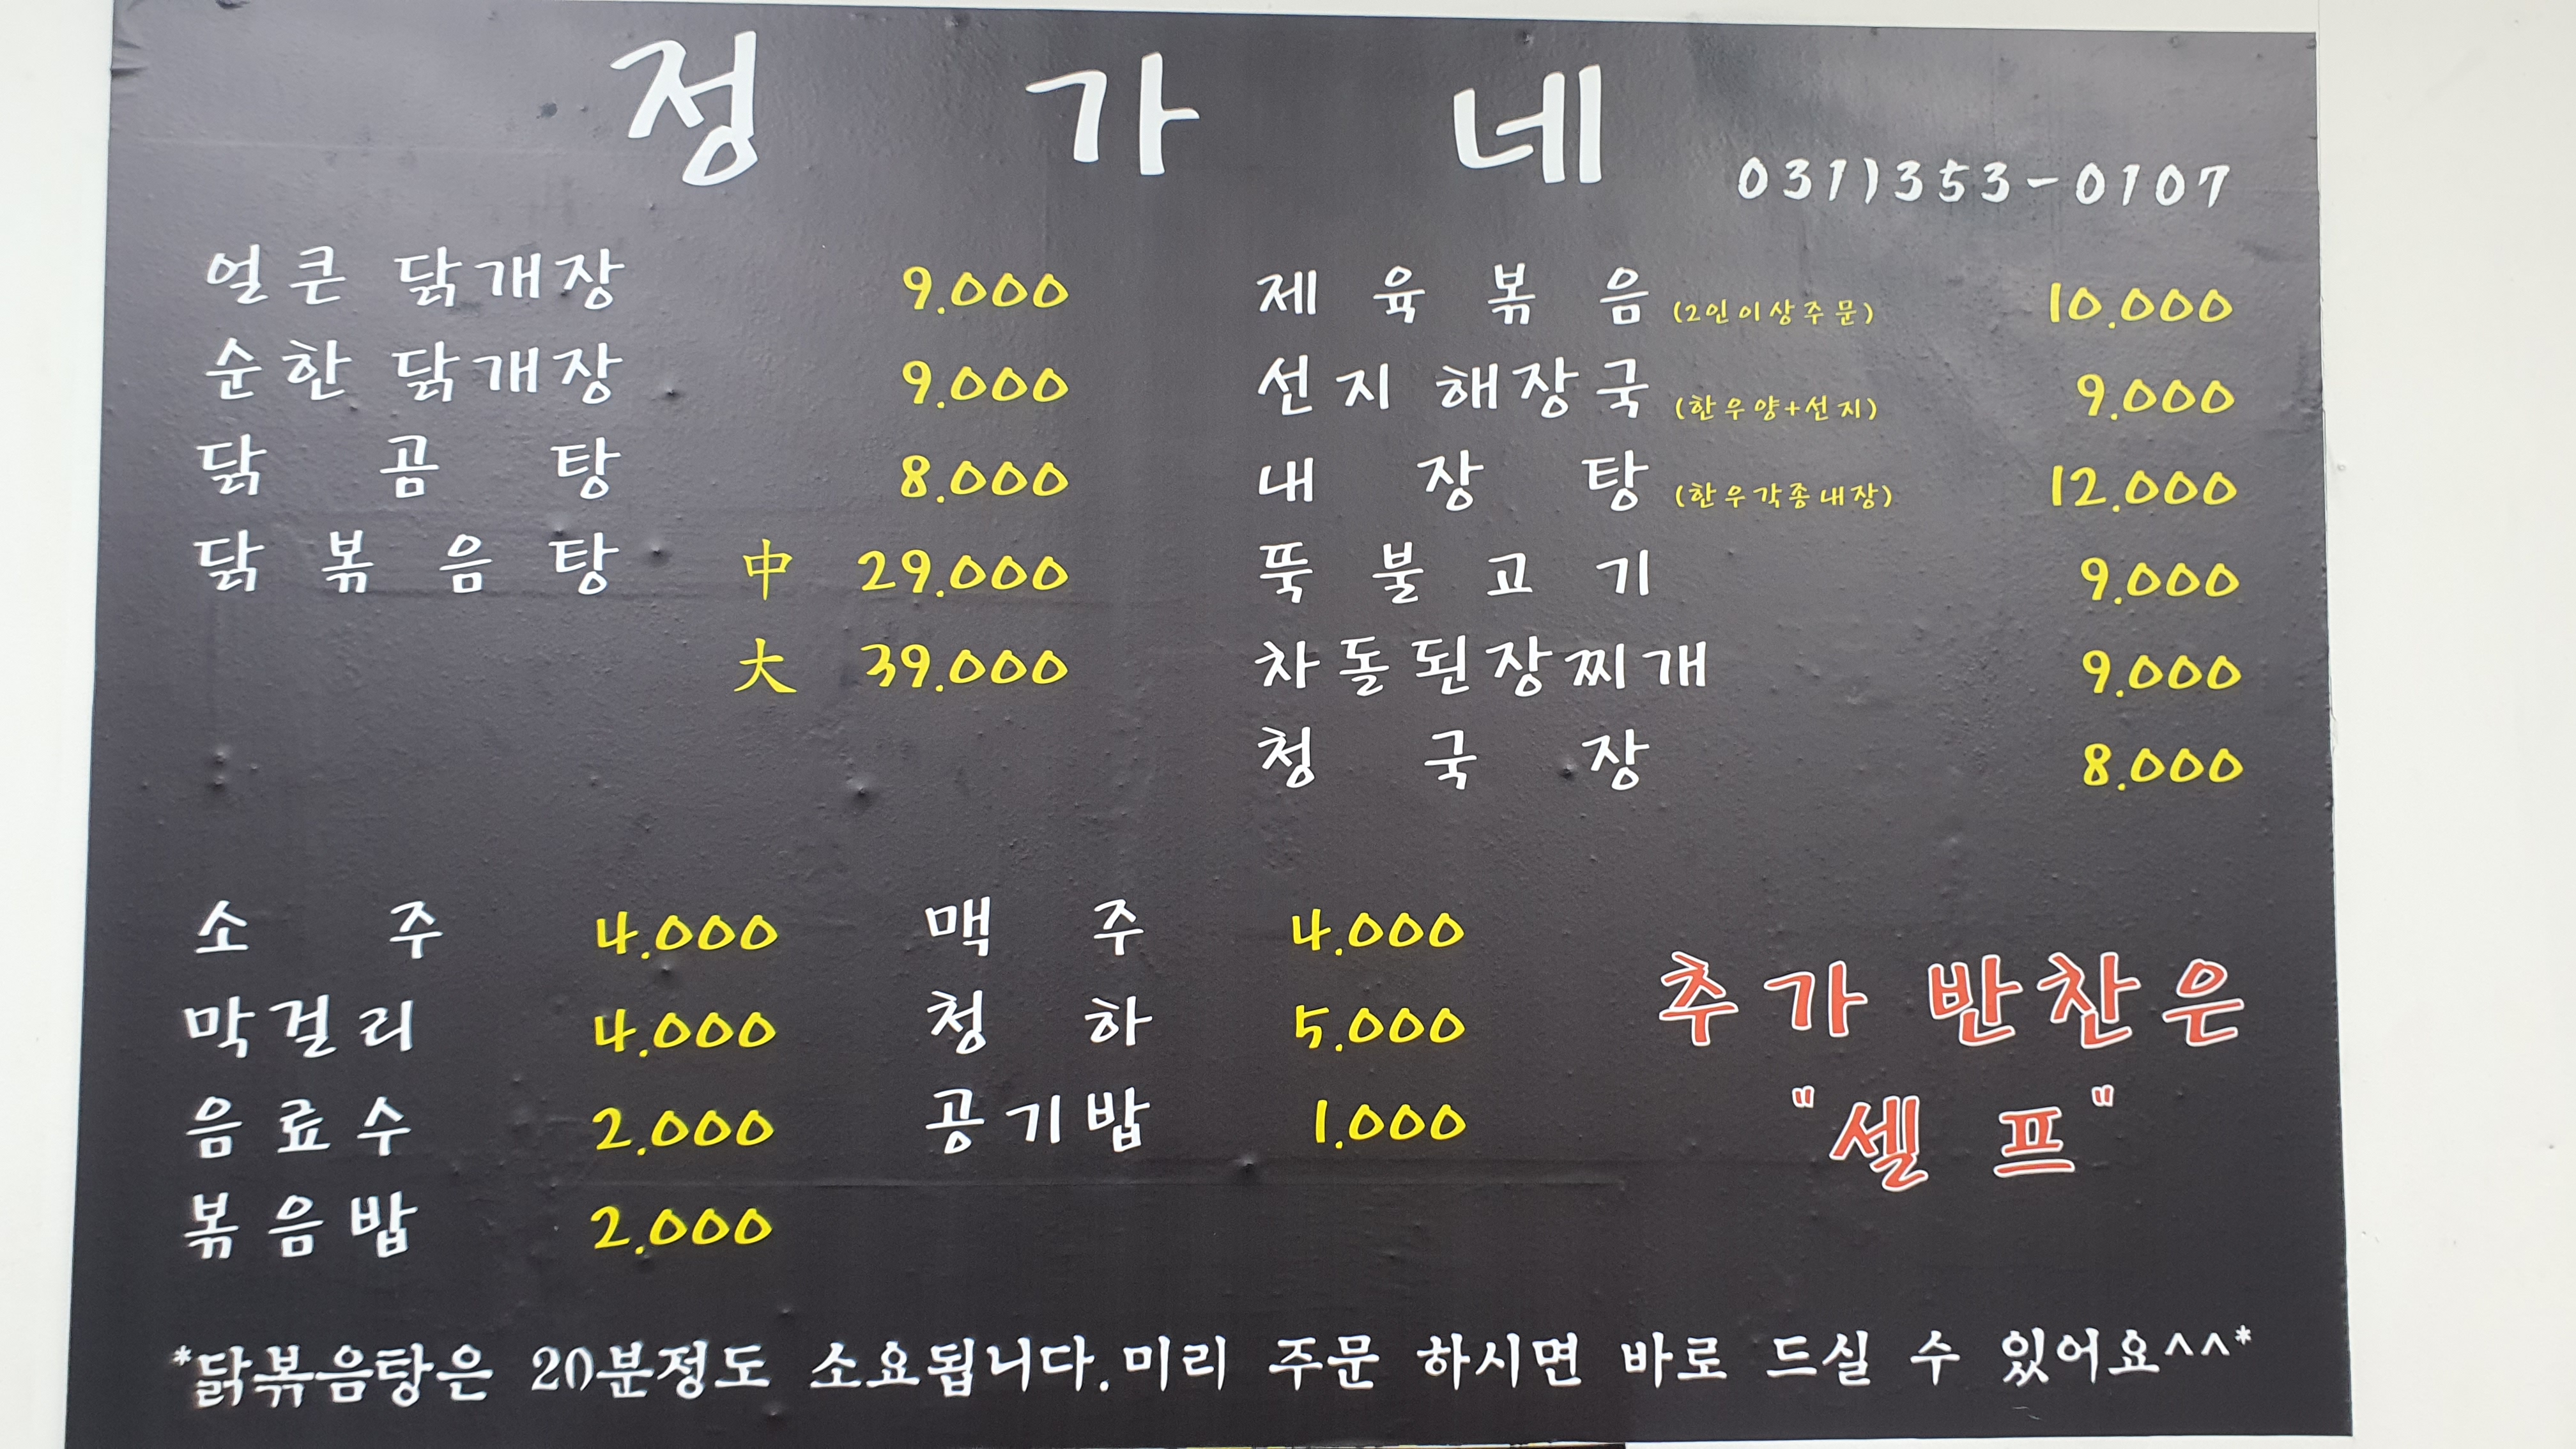 정가네 031)353-0107
얼큰 닭개장 9.000
순한 닭개장 9.000
닭곰탕 8.000
닭볶음탕 中 29.000
大 39.000
제육볶음 (2인이상주문) 10.000
선지 해장국 (한우양+선지) 9.000
내장탕 (한우각종내장) 12.000
뚝불고기 9.000
차돌된장찌개 9.000
청국장 8.000
소주 4.000
막걸리 4.000
음료수 2.000
볶음밥 2.000
맥주 4.000
청하 5.000
공기밥 1.000
추가 반찬은
"셀프"
*닭볶음탕은 20분정도 소요됩니다.미리 주문 하시면 바로 드실 수 있어요^^*